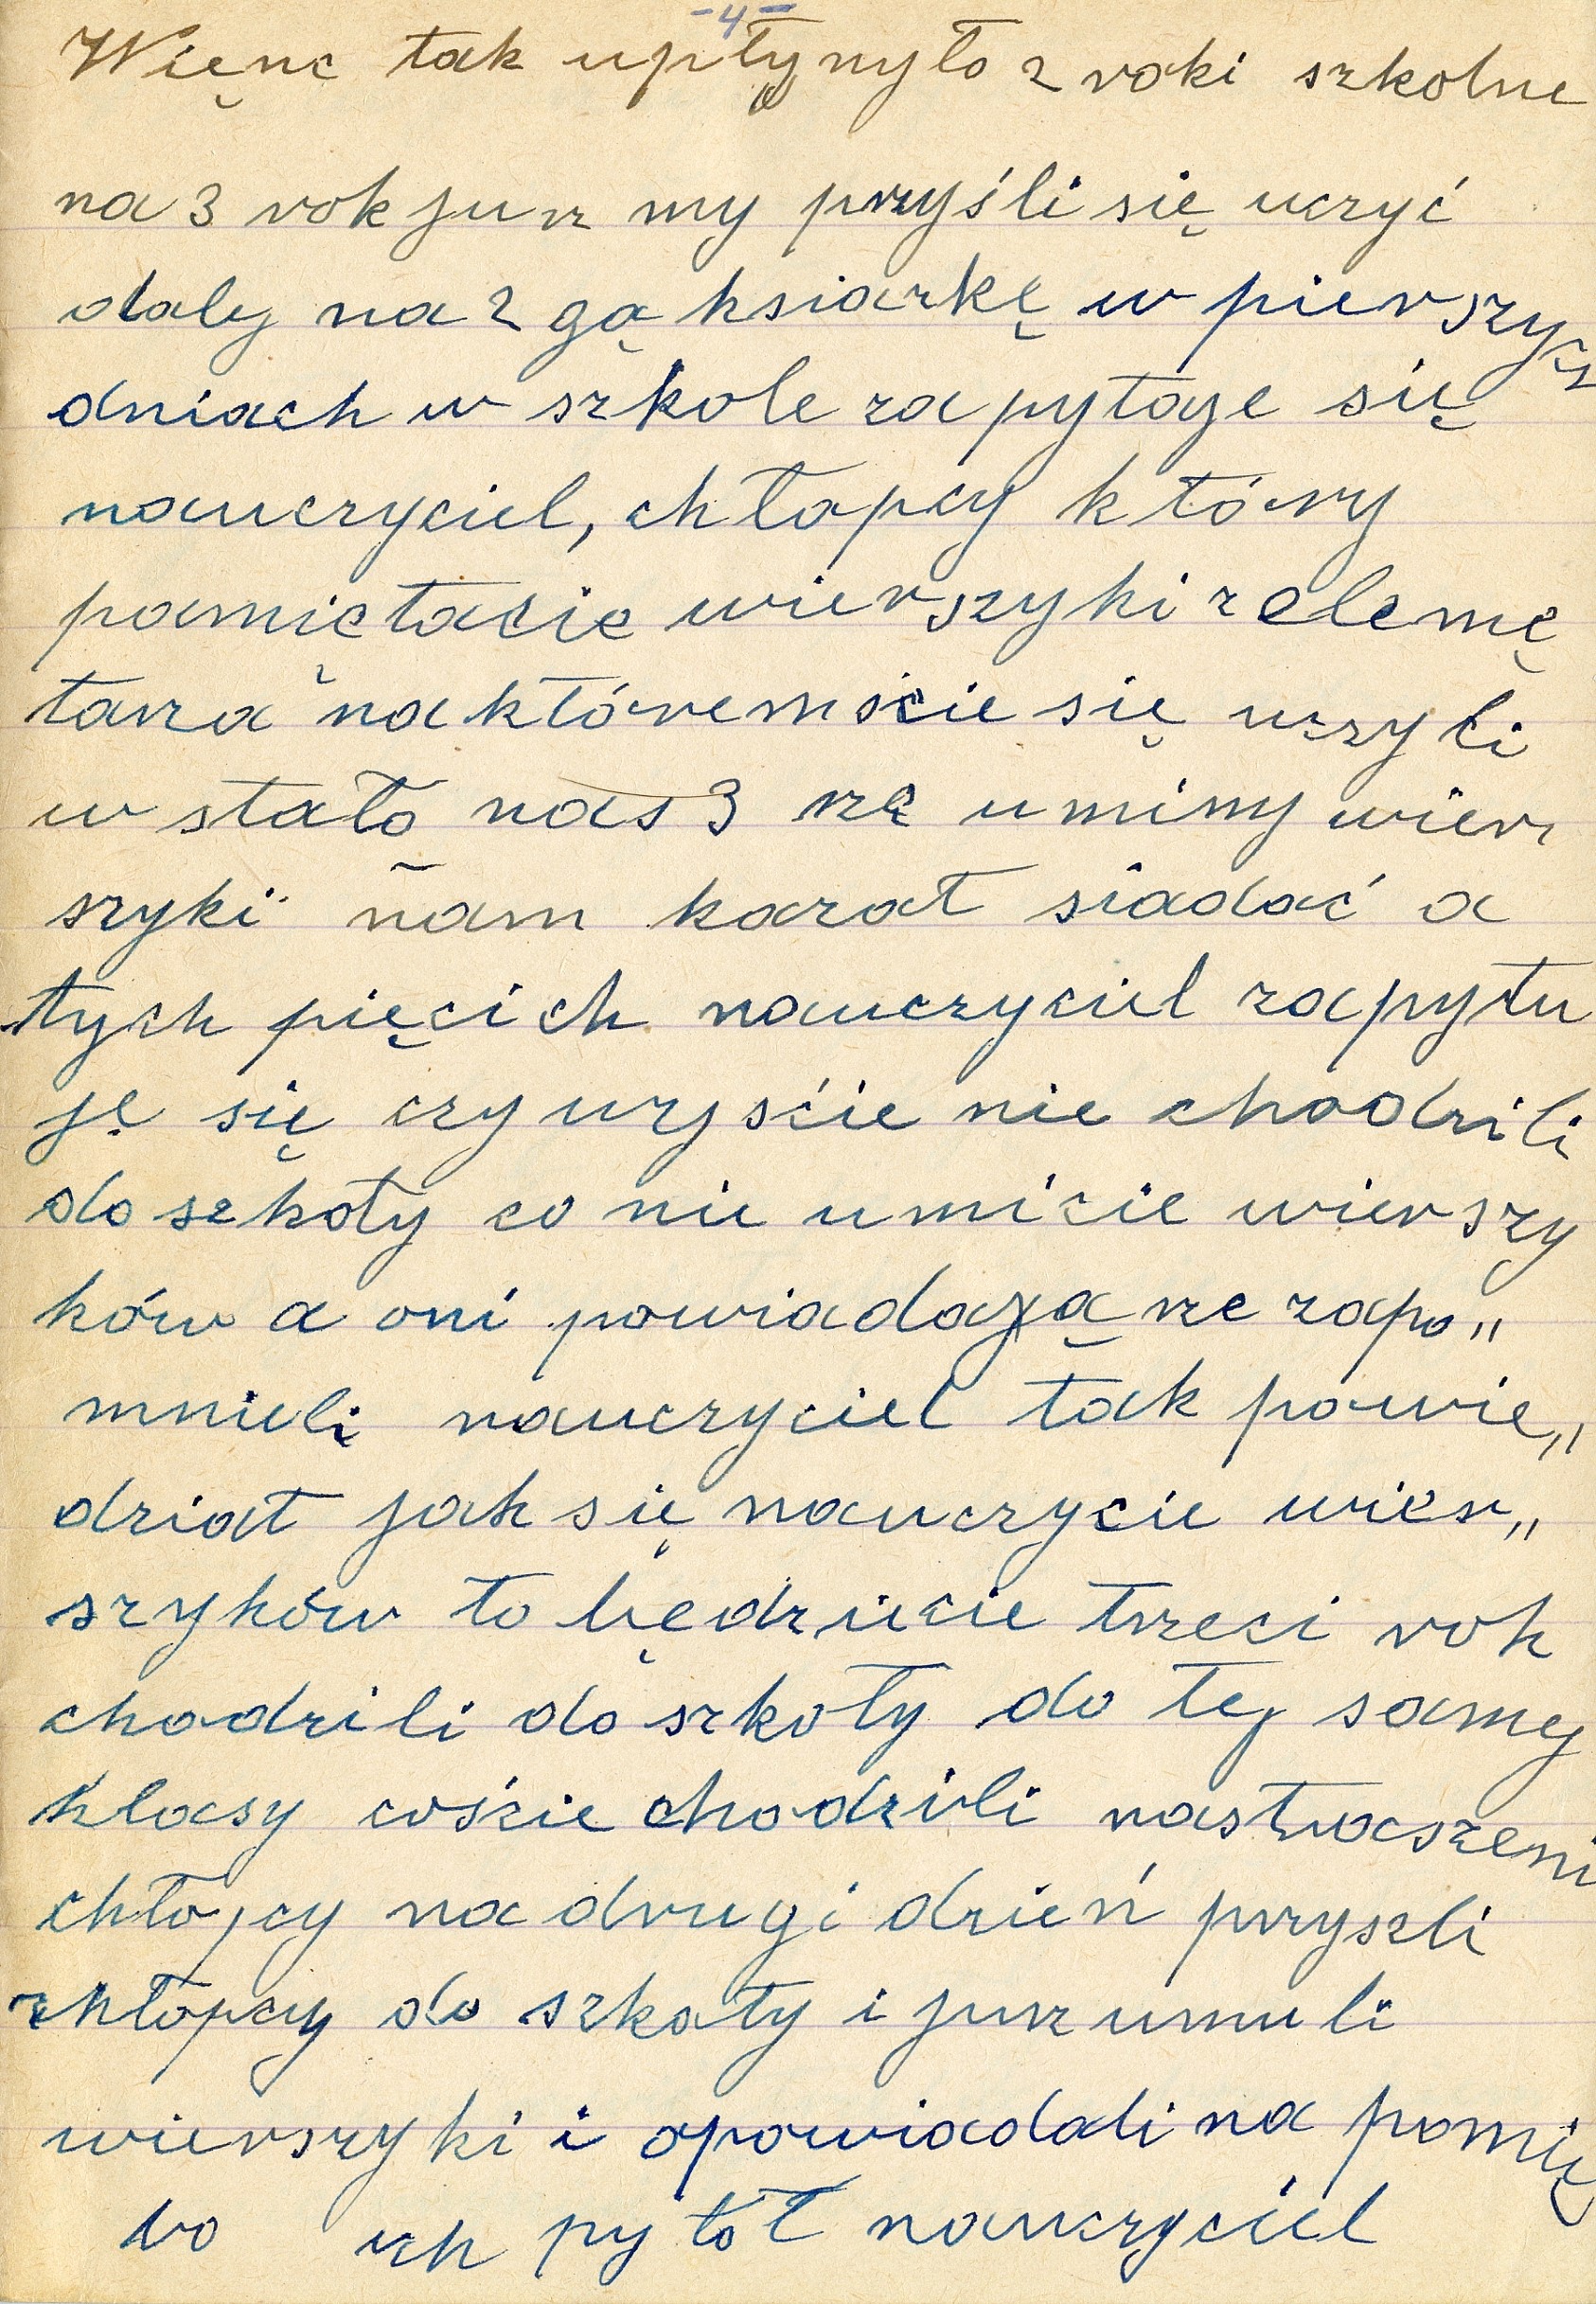 -4-
Więnc tak upłynyło 2 roki szkolne
na 3 rok jurz my pryśli się uczyć
daley na 2 gą ksiarkę w pierwszych
dniach w szkole zapytaje się
nauczyciel, chłopcy który
pamiętacie wierszyki z elemę
tarza na któremście się uczyli
w stało nas 3 rzę umimy wier
szyki nam kazał siadać a
tych pięcich nauczyciel zapytu
ję się czy wyście nie chodzili
do szkoły co nie umicie wierszy
ków a oni powiadają rze zapo„
mnieli nauczyciel tak powie„
dział jak się nauczycie wier„
szyków to będziecie trzeci rok
chodzili do szkoły do tej samej
klasy coście chodzili nastraszeni
chłopcy na drugi dzień przyszli
chłopcy do szkoły i jurz umieli
wierszyki i opowiadali na pomię
bo ich pytoł nauczyciel